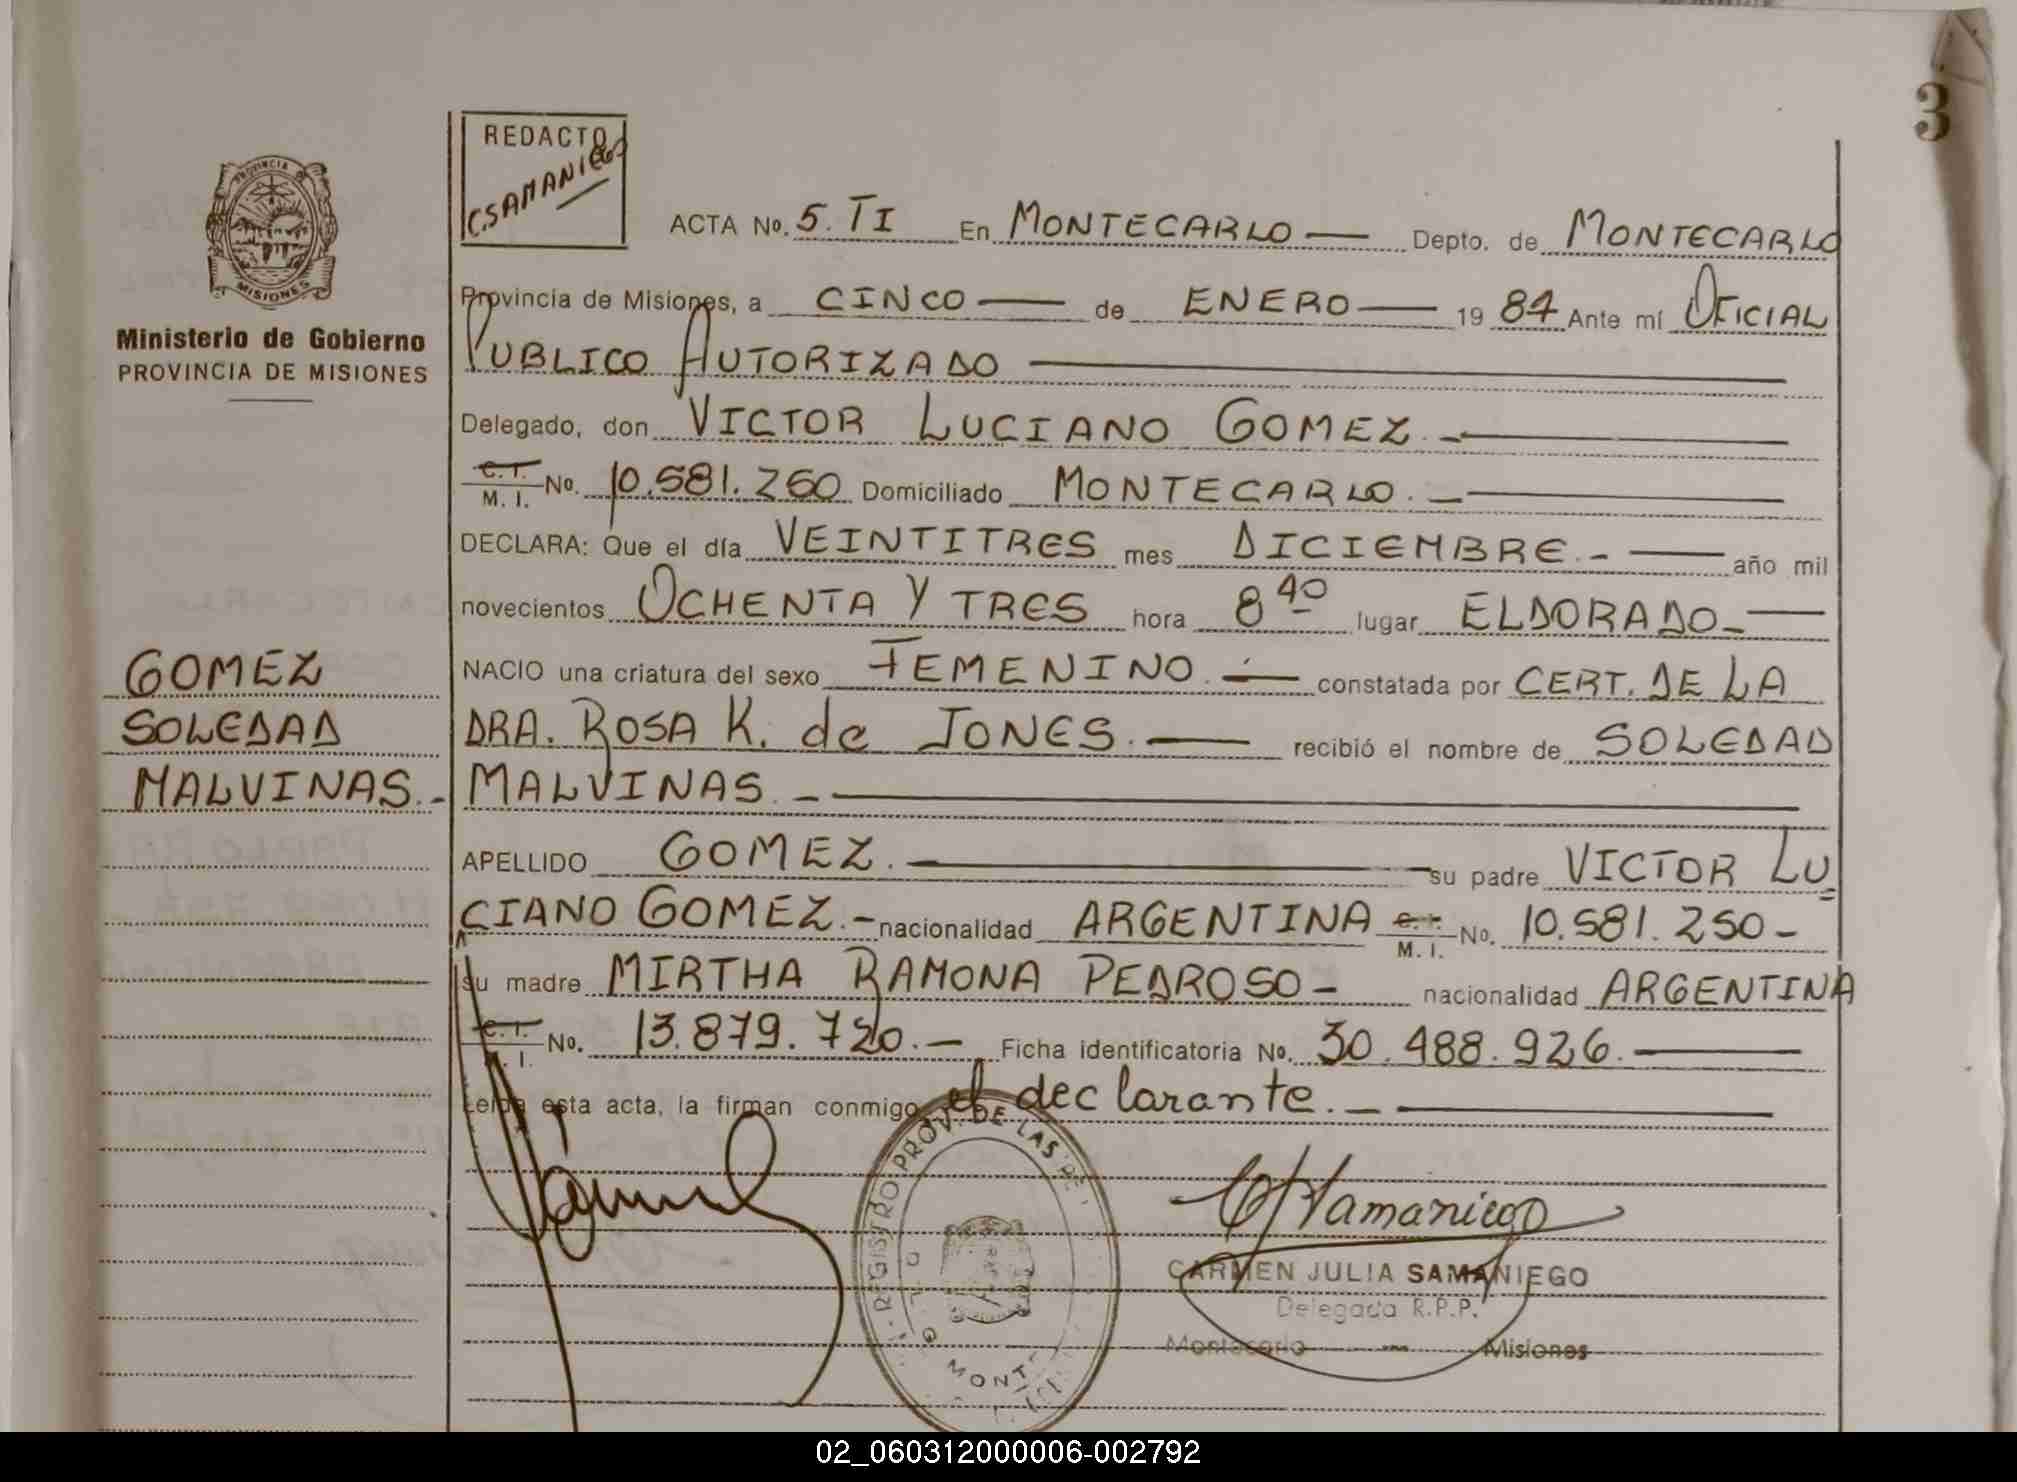 3
REDACTO
C.SAMANIEGO
PROVINCIA DE
MISIONES
Ministerio de Gobierno
PROVINCIA DE MISIONES
ACTA No. 5. TI En MONTECARLO — Depto. de MONTECARLO
Provincia de Misiones, a CINCO — de ENERO — 19 84 Ante mí OFICIAL
PUBLICO AUTORIZADO —
Delegado, don VICTOR LUCIANO GOMEZ. —
C. I. M. I. No. 10.581.250 Domiciliado MONTECARLO. —
DECLARA: Que el día VEINTITRES mes DICIEMBRE. - — año mil
novecientos OCHENTA Y TRES hora 8 40 lugar ELDORADO —
NACIO una criatura del sexo FEMENINO. — constatada por CERT. DE LA
DRA. ROSA K. de JONES. — recibió el nombre de SOLEDAD
MALVINAS. —
APELLIDO GOMEZ. — su padre VICTOR LU
CIANO GOMEZ. - nacionalidad ARGENTINA C. I. M. I. No. 10.581.250 -
su madre MIRTHA RAMONA PEDROSO - nacionalidad ARGENTINA
C. I. M. I. No. 13.879.720. — Ficha identificatoria No. 30.488.926. —
Leida esta acta, la firman conmigo el declarante. —
GOMEZ
SOLEDAD
MALVINAS. -
REGISTRO PROV. DE LAS
MONT
CSamaniego
CARMEN JULIA SAMANIEGO
Delegada R.P.P.
Montecarlo — Misiones
02_060312000006-002792